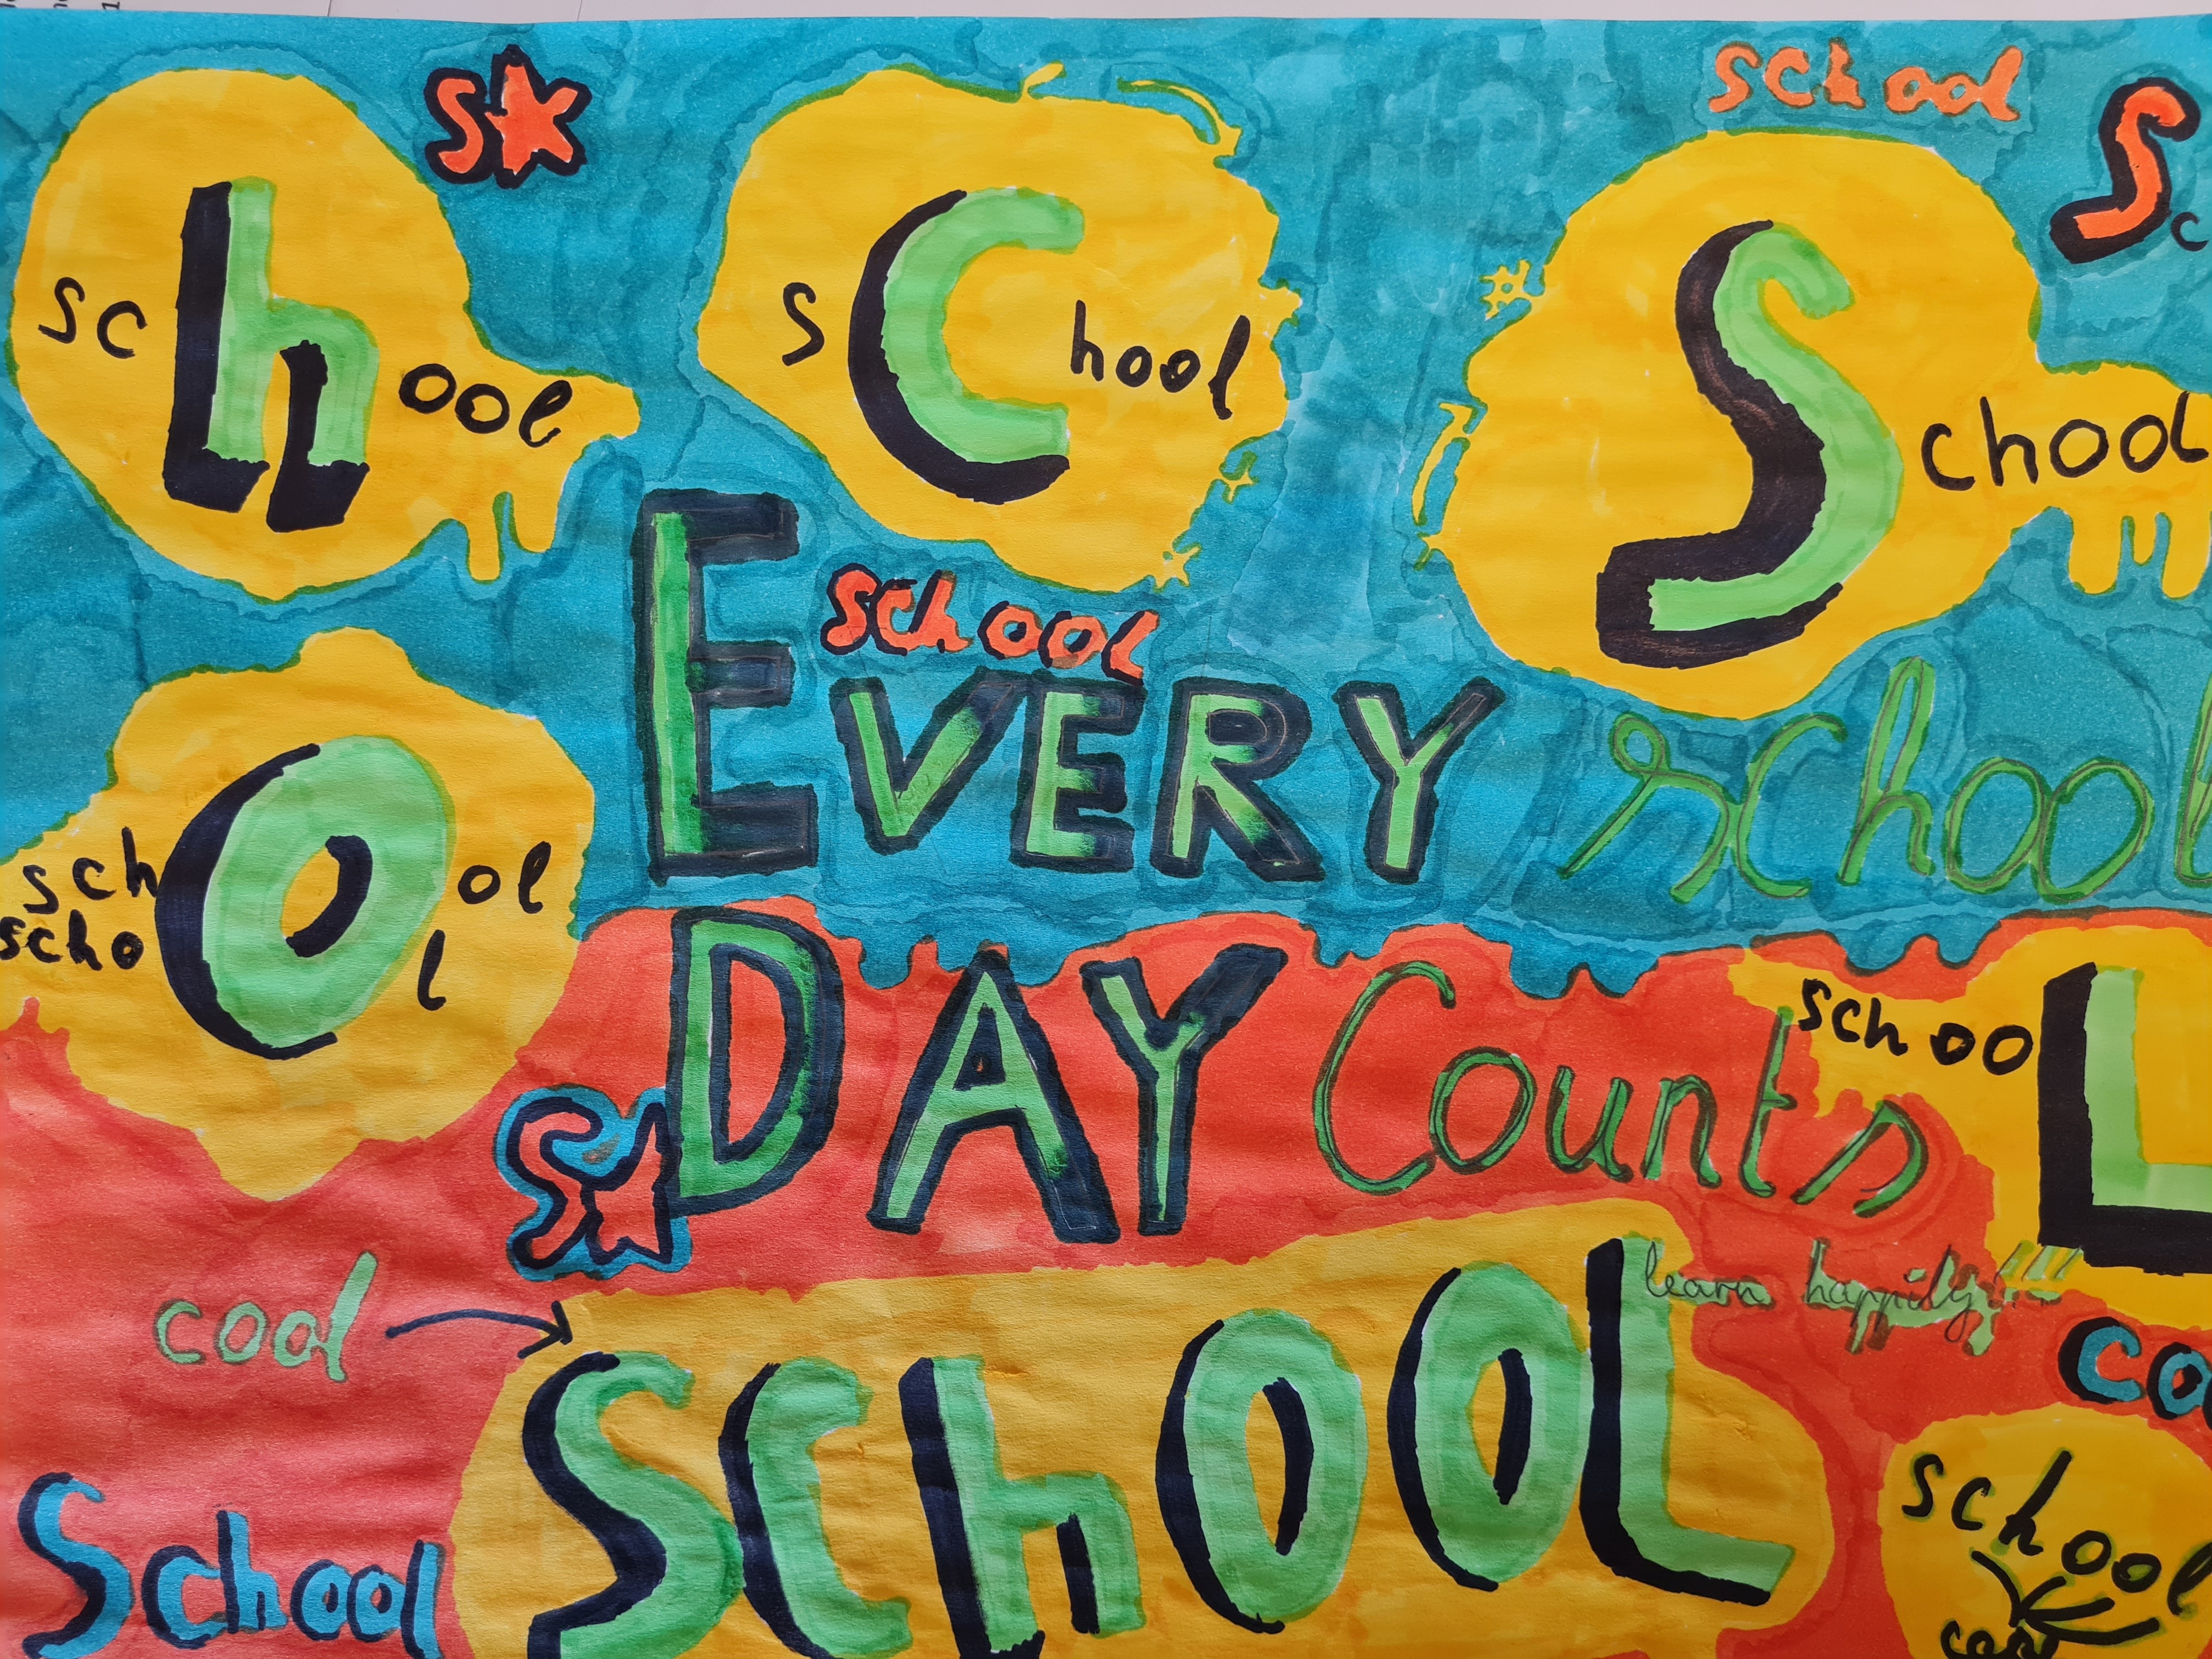 school
school
school
school
school
EVERY school
school
school
DAY Counts
school
learn happily!!!
cool
SChOOL
School
school